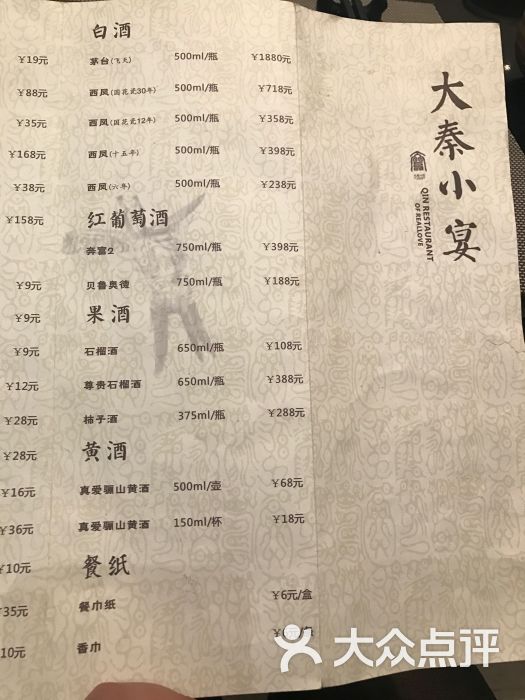 白酒
¥19元
茅台(飞天) 500ml/瓶 ¥1880元
¥88元
西凤(国花瓷30年) 500ml/瓶 ¥718元
¥35元
西凤(国花瓷12年) 500ml/瓶 ¥358元
¥168元
西凤(十五年) 500ml/瓶 ¥398元
¥38元
西凤(六年) 500ml/瓶 ¥238元
¥158元
红葡萄酒
奔富2 750ml/瓶 ¥398元
¥9元
贝鲁奥德 750ml/瓶 ¥188元
¥9元
果酒
¥9元
石榴酒 650ml/瓶 ¥108元
¥12元
尊贵石榴酒 650ml/瓶 ¥388元
¥28元
柿子酒 375ml/瓶 ¥288元
¥28元
黄酒
¥16元
真爱骊山黄酒 500ml/壶 ¥68元
¥36元
真爱骊山黄酒 150ml/杯 ¥18元
¥10元
餐纸
¥35元
餐巾纸 ¥6元/盒
10元
香巾
大秦小宴
QIN RESTAURANT
OF REALLOVE
大众点评